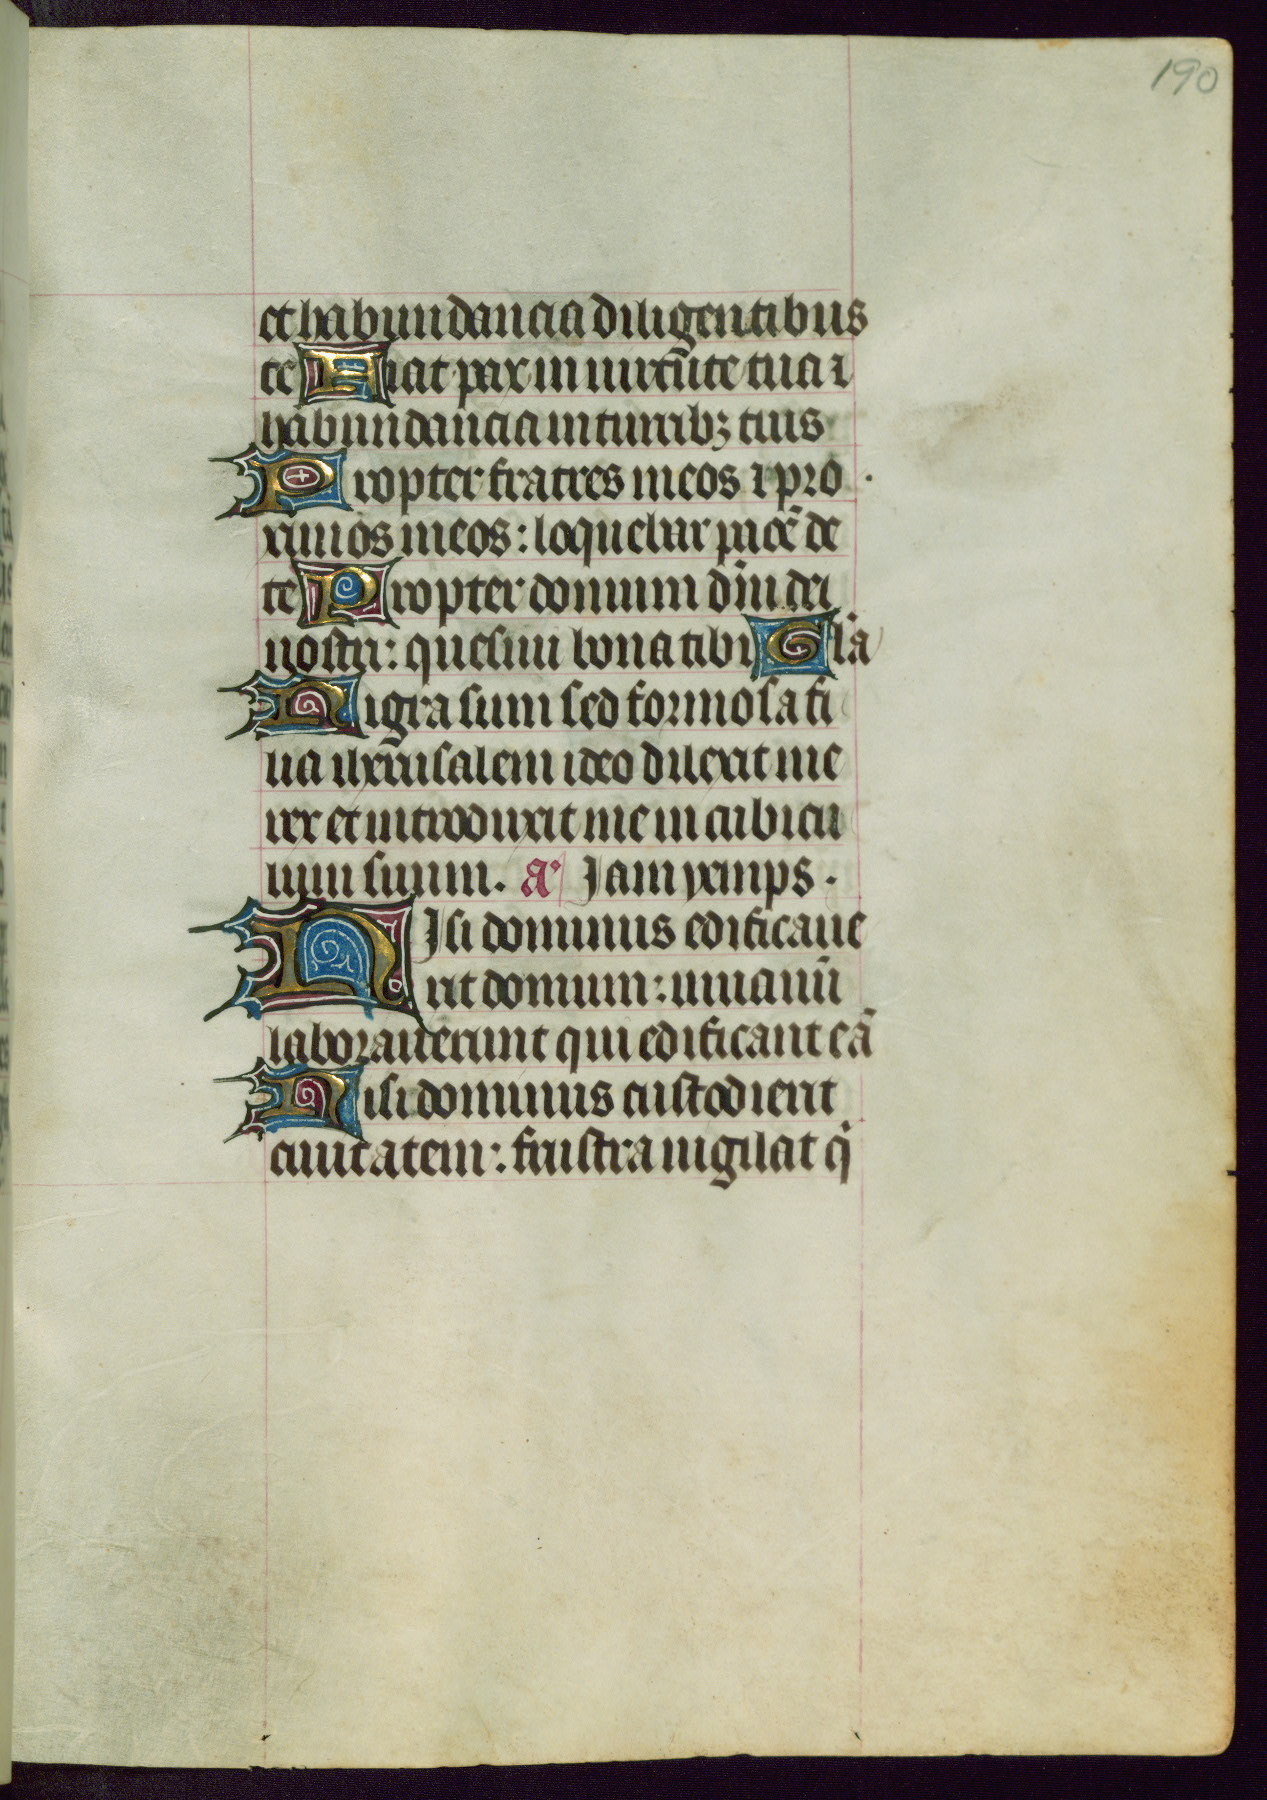 190
et habundancia diligentibus
te Fiat pax in uirtute tua ⁊
habundancia in turribꝫ tuis
Propter fratres meos ⁊ pro
ximos meos: loquebar pacē de
te Propter domum dn̄i dei
nostri: quesiui bona tibi Gl̄a
Nigra sum sed formosa fi
lia ih̄rusalem ideo dilexit me
rex et introduxit me in cubicu
lum suum. a͛ Jam yemps.
NIsi dominus edificaue
rit domum: in uanū
laborauerunt qui edificant eā
Nisi dominus custodierit
ciuitatem: frustra uigilat q̇